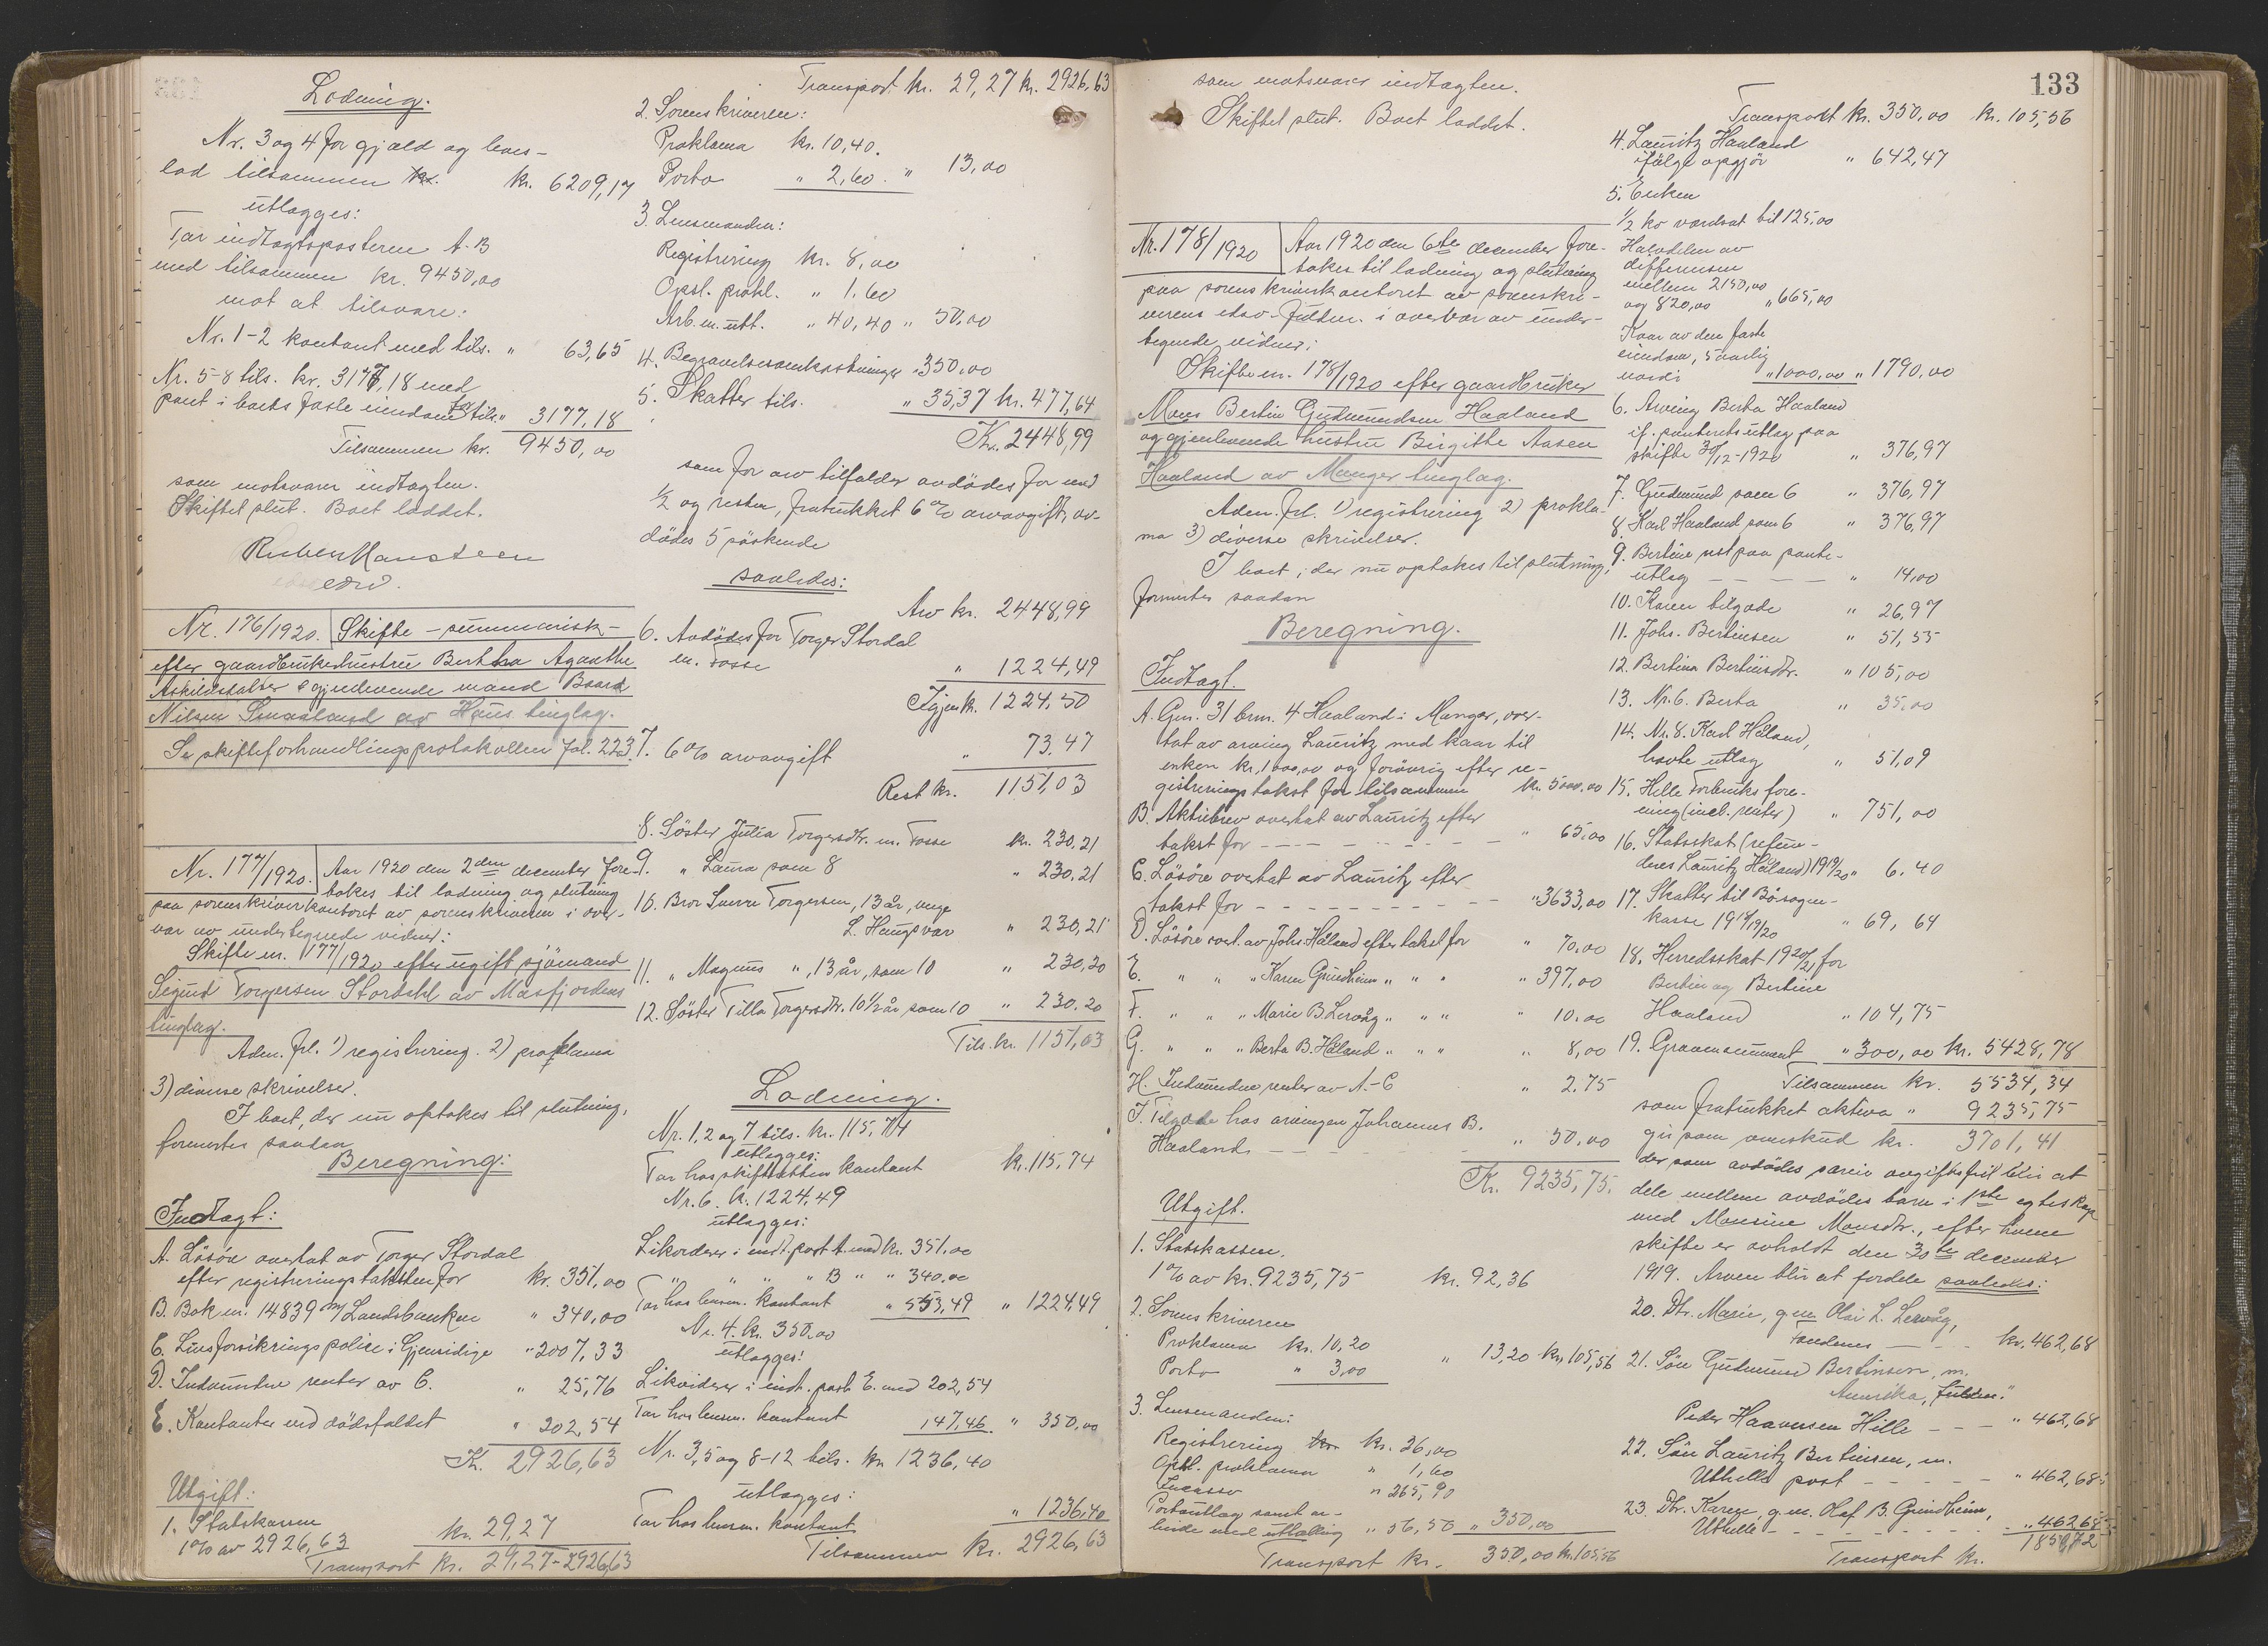 Lodning.
Nr. 3 og 4 for gjæld og boes-
lod tilsammen kr. 6209,17
utlægges:
Tar indtægtsposterne A-B
med tilsammen kr. 9450,00
mot at tilsvare:
Nr. 1-2 kontant med tils. " 63,65
Nr. 5-8 tils. kr. 3177,18 med
pant i boets faste eiendom for tils. " 3177,18
Tilsammen kr. 9450,00
som motsvarer indtægten.
Skiftet slut. Boet loddet.
edv.
Nr. 176/1920. Skifte - summarisk -
efter gaardbrukerhustru Berttha Agaathe
Askildsdatter o gjenlevende mand Baard
Nilsen Smaaland av Haus tinglag.
Se skifteforhandlingsprotokollen fol. 223.
Nr. 177/1920. Aar 1920 den 2den december fore-
tokes til lodning og slutning
paa sorenskriverkontoret av sorenskriveren i over-
vær av undertegnede vidner:
Skifte nr. 177/1920 efter ugift sjömand
Sigurd Torgersen Stordahl av Masfjordens
tinglag.
Aden. frl. 1) registrering. 2) proklama
3) diverse skrivelser.
I boet, der nu optokes til slutning,
formertes saadan
Beregning:
Indtægt:
A. Lösöre overtat av Torger Stordal
efter registreringstaksten for kr. 351,00
B. Bok nr. 14839 m/ Landsbanken " 340,00
C. Livsforsikringspolice i Gjensidige " 2007,33
D. Indvundne renter av C. " 25,76
E. Kontanter ved dödsfaldet " 202,54
Kr. 2926,63
Utgift:
1. Statskassen
1% av 2926,63 kr. 29,27
Transport kr. 29,27 - 2926,63
Transport kr. 29,27 kr. 2926,63
2. Sorenskriveren:
Proklama kr. 10,40.
Porto " 2,60. " 13,00
3. Lensmanden:
Registrering kr. 8,00
Opsl. prokl. " 1,60
Arb. m. utl. " 40,40 " 50,00
4. Begravelsesomkostninger " 350,00
5. Skatter tils. " 35,37 kr. 477,64
Kr. 2448,99
som for arv tilfalder avdödes far med
1/2 og resten, fratrukket 6% arveavgift, av-
dödes 5 söskende
saaledes:
Arv kr. 2448,99
6. Avdödes far Torger Stordal
m. Fosse " 1224,49
Igjen kr. 1224,50
7. 6% arveavgift " 73,47
Rest kr. 1151,03
8. Söster Julia Torgersdtr. m. Fosse kr. 230,21
9. " Laura som 8 " 230,21
10. Bror Sverre Torgersen, 13 år, verge
L. Haugsvær " 230,21
11. " Magnus ", 13 år, som 10 " 230,20
12. Söster Tilla Torgersdtr. 10 1/2 år som 10 " 230,20
Tils. kr. 1151,03
Lodning.
Nr. 1, 2 og 7 tils. kr. 115,74
utlægges:
Tar hos skifteretten kontant kr. 115,74
Nr. 6. kr. 1224,49
utlægges:
Likviderer i indt. post A. med kr. 351,00
" " " " B " " 340,00
Tar hos lensm. kontant " 533,49 " 1224,49
Nr. 4. kr. 350,00
utlægges:
Likviderer i indt. post E. med 202,54
Tar hos lensm. kontant 147,46 " 350,00
Nr. 3, 5 og 8-12 tils. kr. 1236,40
utlægges:
Tar hos lensm. kontant " 1236,40
Tilsammen kr. 2926,63
133
som motsvarer indtægten.
Skiftet slut. Boet loddet.
Nr. 178/1920 Aar 1920 den 6te december fore-
tokes til lodning og slutning
paa sorenskriverkontoret av sorenskri-
verens edsv. fuldm. i overvær av under-
tegnede vidner:
Skifte nr. 178/1920 efter gaardbruker
Mons Bertin Gudmundsen Haaland
og gjenlevende hustru Birgithe Aasen
Haaland av Manger tinglag.
Aden. frl. 1) registrering 2) prokla-
ma 3) diverse skrivelser.
I boet, der nu optokes til slutning,
formertes saadan
Beregning.
Indtægt.
A. Gnr. 31 brn. 4 Haaland i Manger, over-
tat av arving Lauritz med kaar til
enken kr. 1000,00 og forövrig efter re-
gistreringstakst for tilsammen kr. 5000,00
B. Aktiebrev overtat av Lauritz efter
takst for " 65,00
C. Lösöre overtat av Lauritz efter
takst for " 3633,00
D. Lösöre overt. av Johs. Håland efter takst for " 70,00
E. " " " Karen Grindheim " " " " 397,00
F. " " " Marie B. Lervåg " " " " 10,00
G. " " " Berta B. Håland " " " " 8,00
H. Indvundne renter av A.-C " 2,75
I. Tilgode hos arvingen Johannes B.
Haaland " 50,00
Kr. 9235,75.
Utgift.
1. Statskassen.
1% av kr. 9235,75 kr. 92,36
2. Sorenskriveren
Proklama kr. 10,20
Porto " 3,00 " 13,20 kr. 105,56
3. Lensmanden:
Registrering kr. 26,00
Opsl. proklama " 1,60
Incasso " 265,90
Portoutlæg samt ar-
beide med utlodning " 56,50 " 350,00
Transport kr. 350,00 kr. 105,56
Transport kr. 350,00 kr. 105,56
4. Lauritz Haaland
ifölge opgjör " 642,47
5. Enken
1/2 ko værdsat til 125,00
Halvdelen av
differensen
mellem 2150,00
og 820,00 " 665,00
Kaar av den faste
eiendom, 5 aarlig
værdi " 1000,00 " 1790,00
6. Arving Berta Haaland
if. panteretsutlæg paa
skifte 30/12-1920 " 376,97
7. Gudmund som 6 " 376,97
8. Karl Haaland som 6 " 376,97
9. Bertine rest paa pante-
utlæg " 14,00
10. Karen tilgode " 26,97
11. Johs. Bertinsen " 51,55
12. Bertina Bertinsdtr. " 105,00
13. Nr. 6. Berta " 35,00
14. Nr. 8. Karl Håland,
havte utlæg " 51,09
15. Hille Forbruksfore-
ning (incl. renter) " 751,00
16. Statsskat (refun-
deres Lauritz Håland) 1919/20 " 6,40
17. Skatter til Bösogn-
kasse 1918/19/20 " 69,64
18. Herredsskat 1920/21 for
Bertin og Bertine
Haaland " 104,75
19. Gravmonument " 300,00 kr. 5428,78
Tilsammen kr. 5534,34
som fratrukket aktiva " 9235,75
gir som overskud kr. 3701,41
der som avdödes særeie avgiftsfrit blir at
dele mellem avdödes barn i 1ste egteskap
med Monsine Monsdtr., efter hvem
skifte er avholdt den 30te december
1919. Arven blir at fordele saaledes:
20. Dtr. Marie, g.m. Olai L. Lervåg,
kr. 462,68
21. Sön Gudmund Bertinsen, m.
Amerika, fuldm.
Peder Haaversen Hille " 462,68
22. Sön Lauritz Bertinsen, m.
Uthella post " 462,68
23. Dtr. Karen, g.m. Olaf B. Grindheim,
Uthella " 462,68
Transport kr. 1850,72